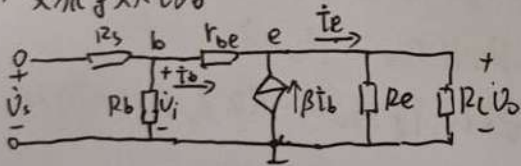 Rs
b
rbe
e
İe
+
U̇s
-
Rb
+
U̇i
-
İb
βİb
Re
RL
+
U̇o
-